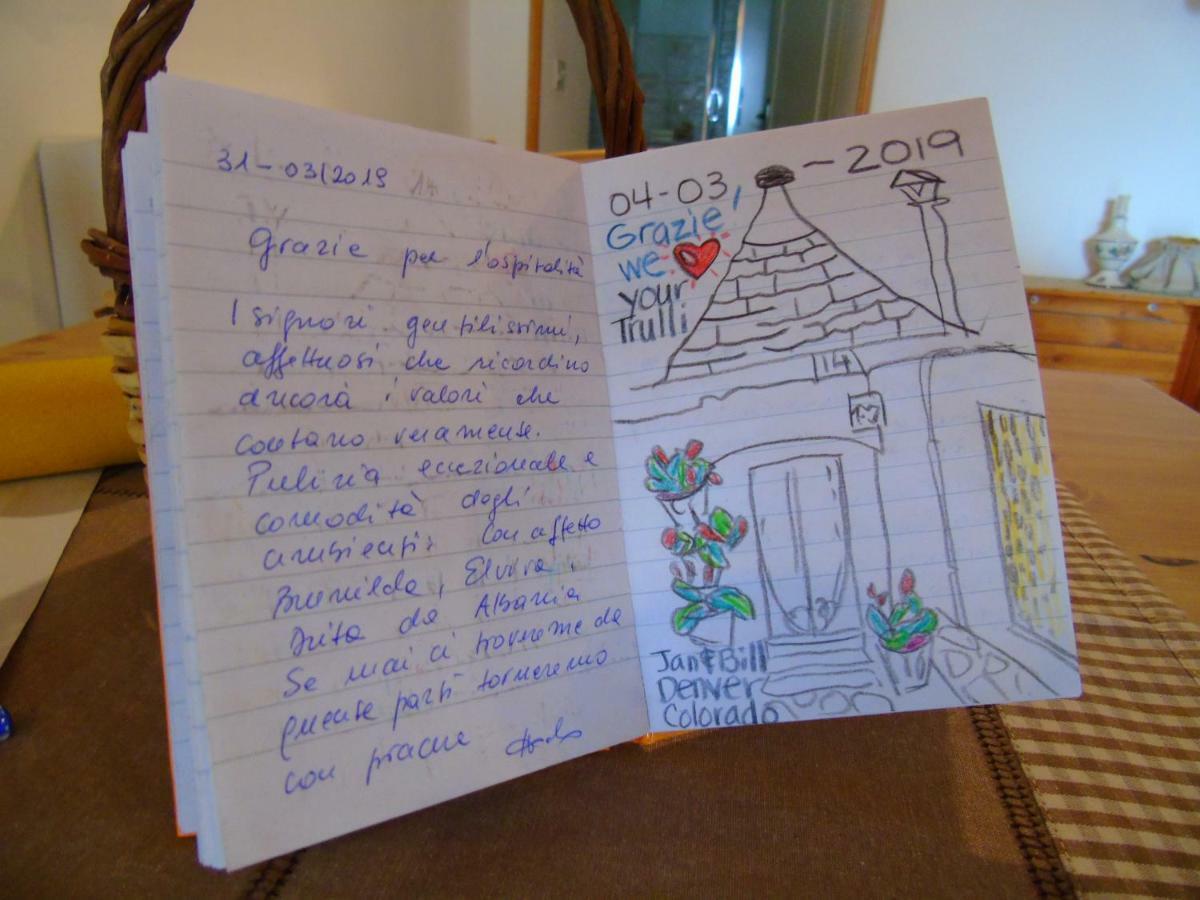 31-03/2019
Grazie per l'ospitalità
I signori gentilissimi,
affettuosi che ricordino
ancora i valori che
contano veramente.
Pulizia eccezionale e
comodità degli
ambienti. Con affetto
Brunilda, Elvira,
Drita da Albania
Se mai ci troveremo da
queste parti torneremo
con piacere
04-03, -2019
Grazie,
we ❤
your
Trulli
14
Jan & Bill
Denver
Colorado